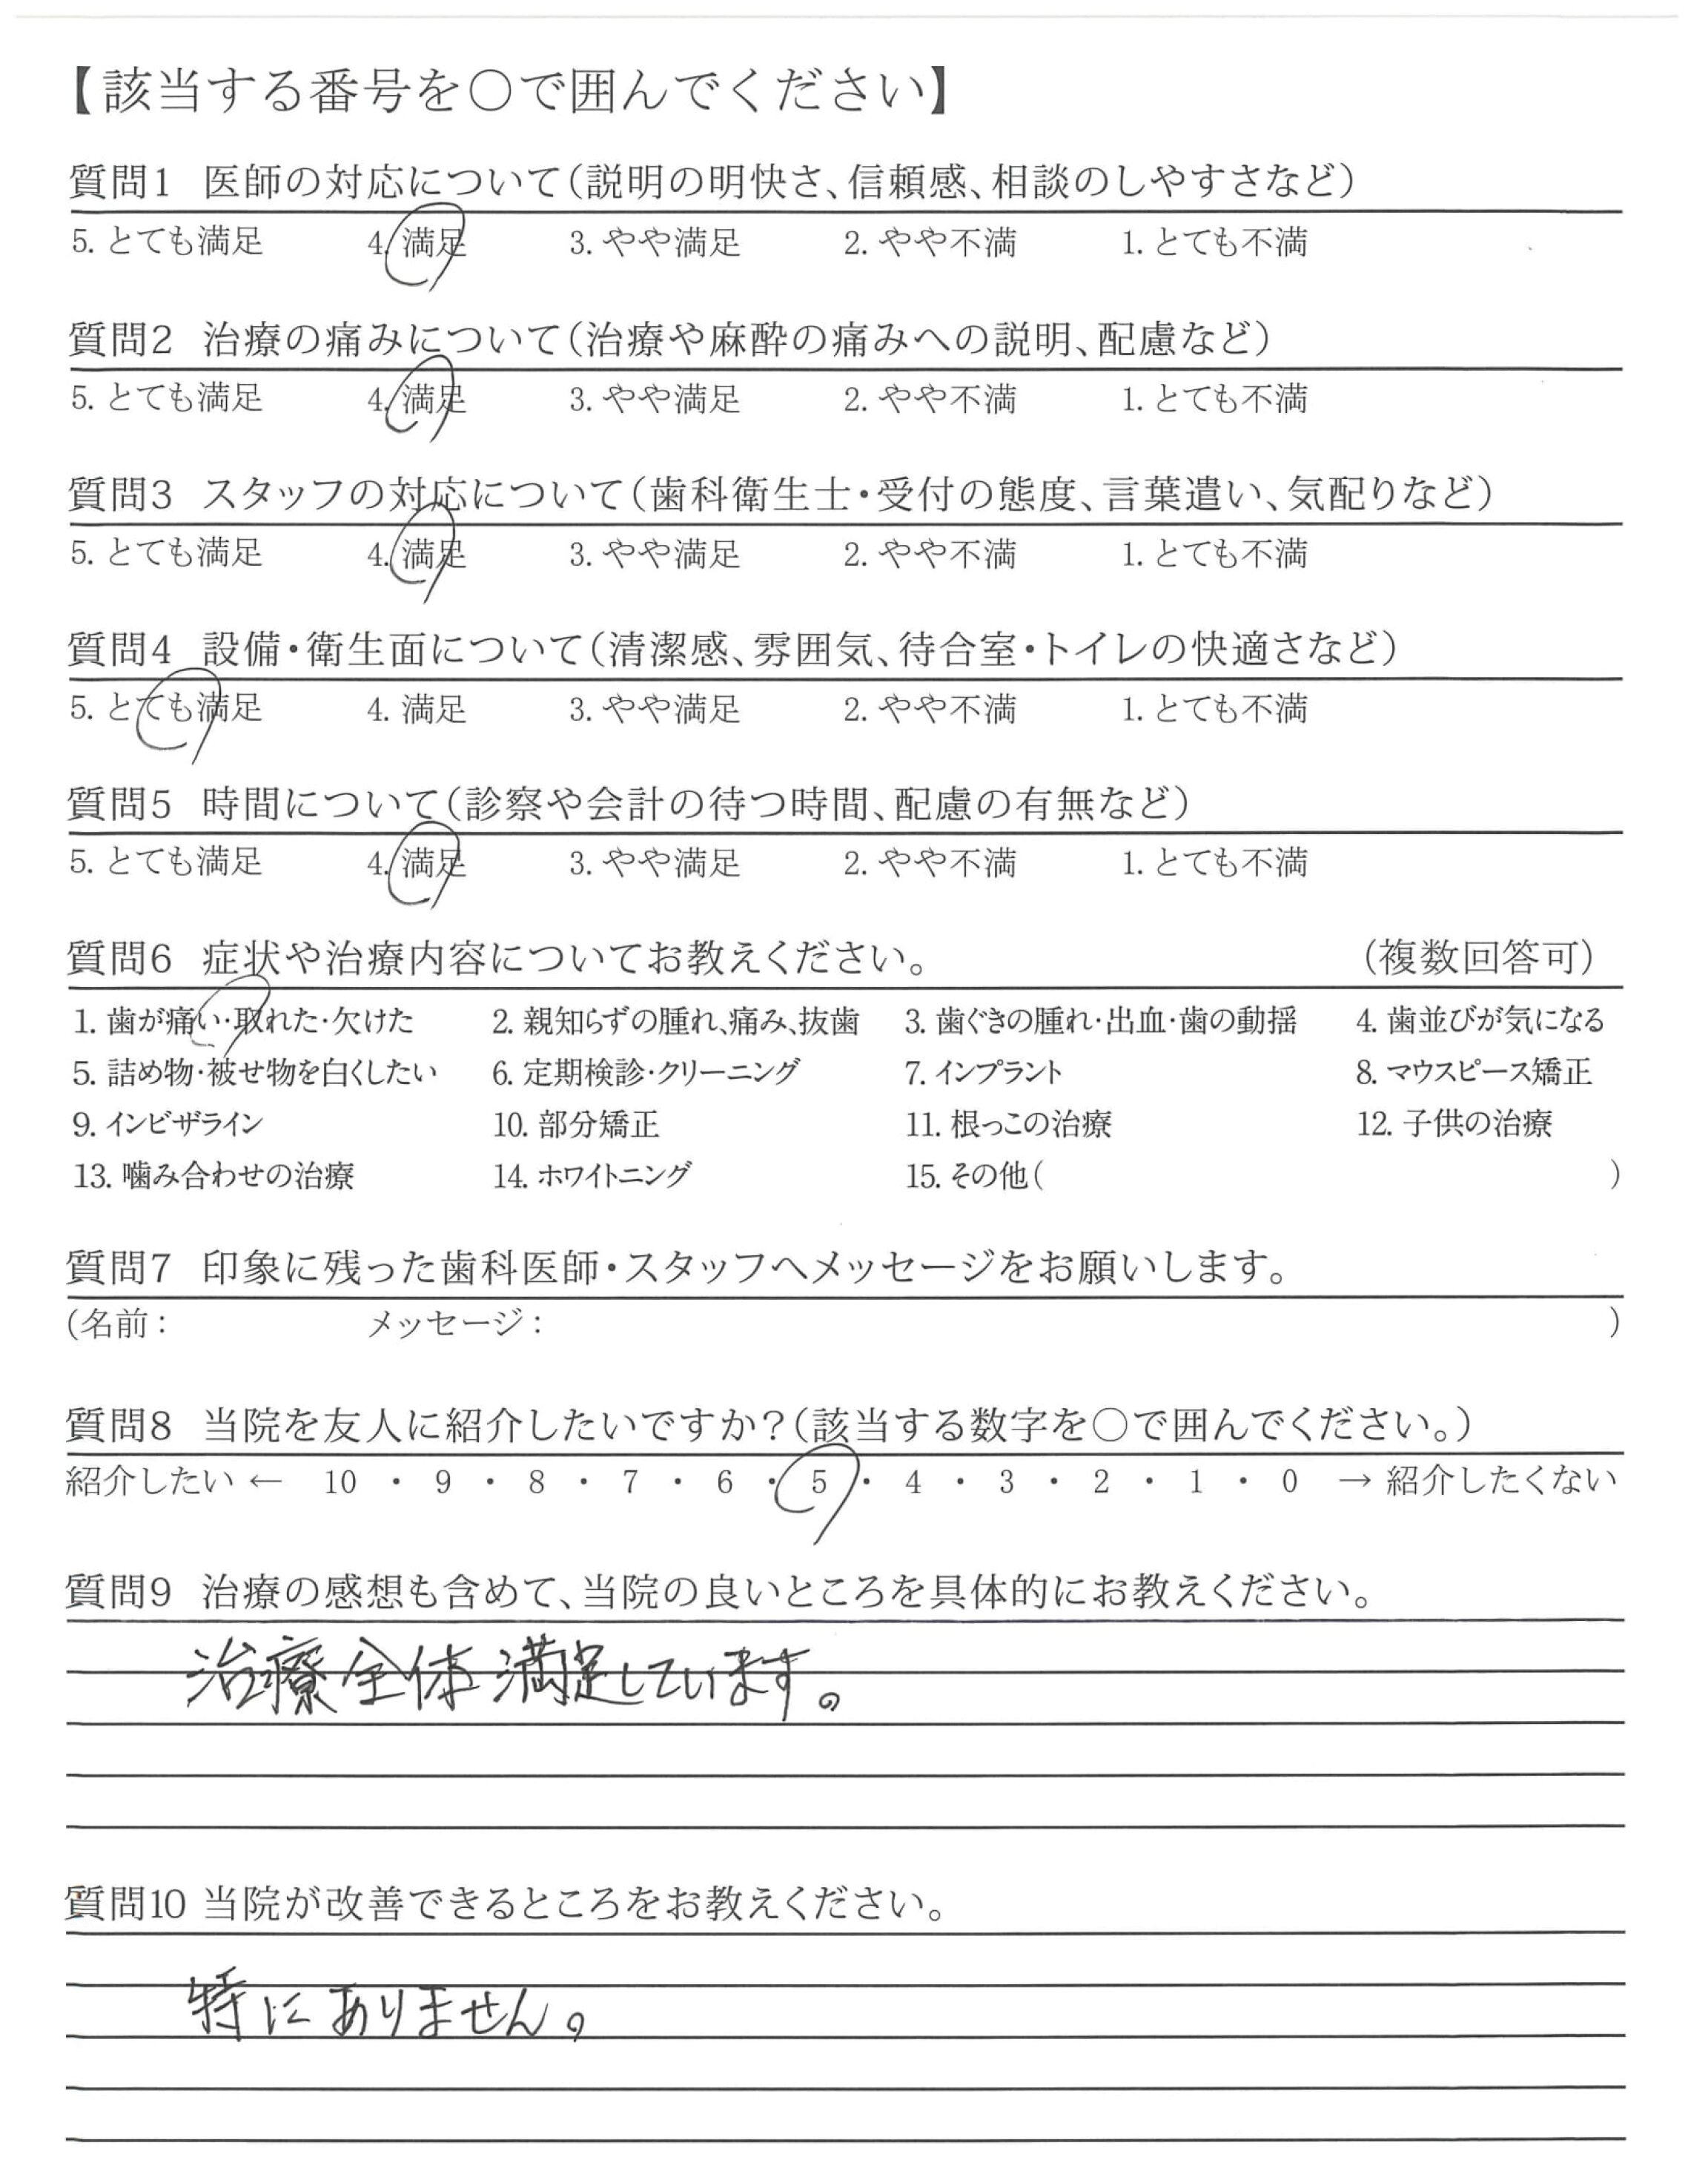 【該当する番号を○で囲んでください】
質問1 医師の対応について(説明の明快さ、信頼感、相談のしやすさなど)
5. とても満足 4. 満足 3. やや満足 2. やや不満 1. とても不満
質問2 治療の痛みについて(治療や麻酔の痛みへの説明、配慮など)
5. とても満足 4. 満足 3. やや満足 2. やや不満 1. とても不満
質問3 スタッフの対応について(歯科衛生士・受付の態度、言葉遣い、気配りなど)
5. とても満足 4. 満足 3. やや満足 2. やや不満 1. とても不満
質問4 設備・衛生面について(清潔感、雰囲気、待合室・トイレの快適さなど)
5. とても満足 4. 満足 3. やや満足 2. やや不満 1. とても不満
質問5 時間について(診察や会計の待つ時間、配慮の有無など)
5. とても満足 4. 満足 3. やや満足 2. やや不満 1. とても不満
質問6 症状や治療内容についてお教えください。 (複数回答可)
1. 歯が痛い・取れた・欠けた 2. 親知らずの腫れ、痛み、抜歯 3. 歯ぐきの腫れ・出血・歯の動揺 4. 歯並びが気になる
5. 詰め物・被せ物を白くしたい 6. 定期検診・クリーニング 7. インプラント 8. マウスピース矯正
9. インビザライン 10. 部分矯正 11. 根っこの治療 12. 子供の治療
13. 噛み合わせの治療 14. ホワイトニング 15. その他( )
質問7 印象に残った歯科医師・スタッフへメッセージをお願いします。
(名前: メッセージ: )
質問8 当院を友人に紹介したいですか?(該当する数字を○で囲んでください。)
紹介したい ← 10 ・ 9 ・ 8 ・ 7 ・ 6 ・ 5 ・ 4 ・ 3 ・ 2 ・ 1 ・ 0 → 紹介したくない
質問9 治療の感想も含めて、当院の良いところを具体的にお教えください。
治療全体満足しています。
質問10 当院が改善できるところをお教えください。
特にありません。